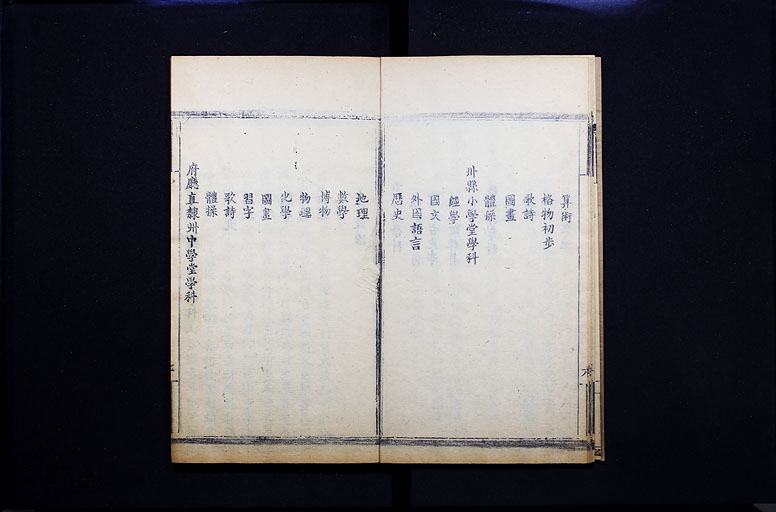 算術
格物初步
歌詩
圖畫
體操
州縣小學堂學科
經學
國文
外國語言
歷史
地理
數學
博物
物理
化學
圖畫
習字
歌詩
體操
府廳直隸州中學堂學科